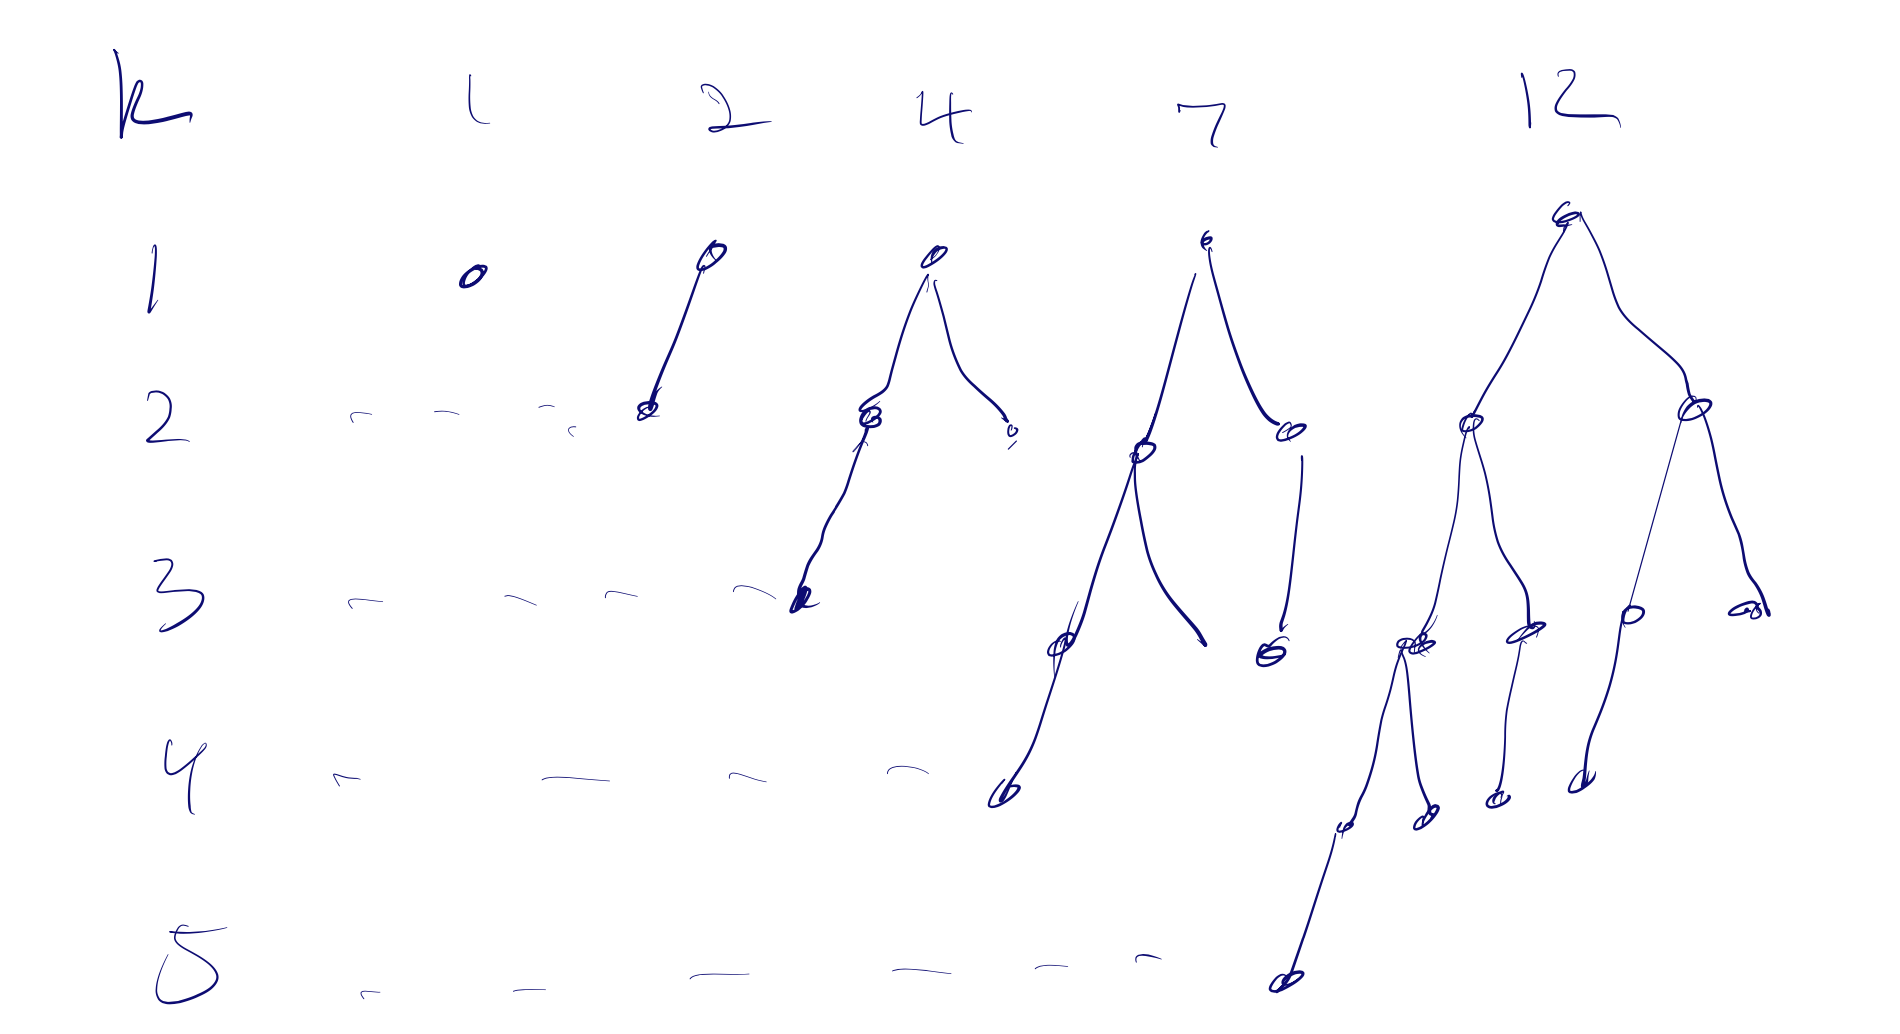 k 1 2 4 7 12
1
2
3
4
5